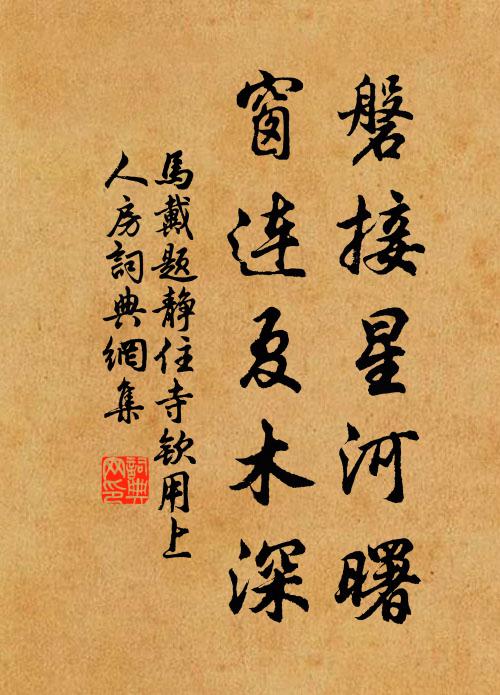 磐接星河曙
窗连夏木深
馬戴题静住寺钦用上
人房詞典網集
詞典网印